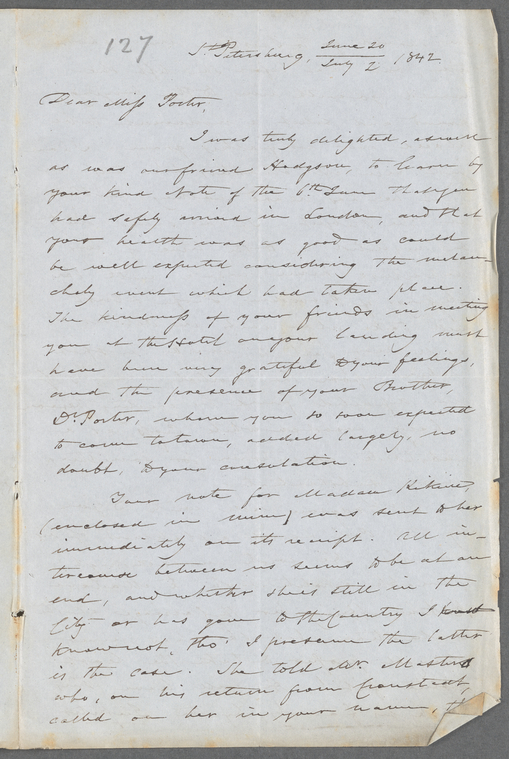 127
St. Petersburg, June 20 / July 2 1842
Dear Miss Porter,
I was truly delighted, as well
as was our friend Hodgson, to learn by
your kind Note of the 6th June that you
had safely arrived in London, and that
your health was as good as could
be well expected considering the melan-
choly event which had taken place.
The kindness of your friends in meeting
you at the Hotel on your landing must
have been very grateful to your feelings,
and the presence of your Brother,
Dr. Porter, whom you so soon expected
to come to town, added largely, no
doubt, to your consolation.
Your note for Madam Kikine,
(enclosed in mine) was sent to her
immediately on its receipt. All in-
tercourse between us seems to be at an
end, and whether she is still in the
City or has gone to the Country I
know not, tho' I presume the latter
is the case. She told Mr. Masters
who, on his return from Cronstadt,
called on her in your name, th